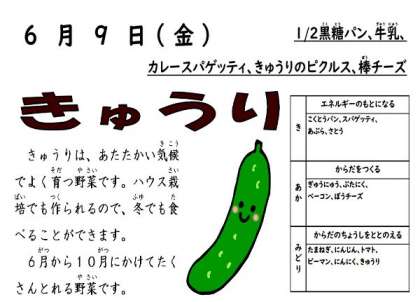 6月9日(金)
1/2黒糖パン、牛乳、
カレースパゲッティ、きゅうりのピクルス、棒チーズ
きゅうり
きゅうりは、あたたかい気候
でよく育つ野菜です。ハウス栽
培でも作られるので、冬でも食
べることができます。
6月から10月にかけてたく
さんとれる野菜です。
き
エネルギーのもとになる
こくとうパン、スパゲッティ、
あぶら、さとう
あか
からだをつくる
ぎゅうにゅう、ぶたにく、
ベーコン、ぼうチーズ
みどり
からだのちょうしをととのえる
たまねぎ、にんじん、トマト、
ピーマン、にんにく、きゅうり